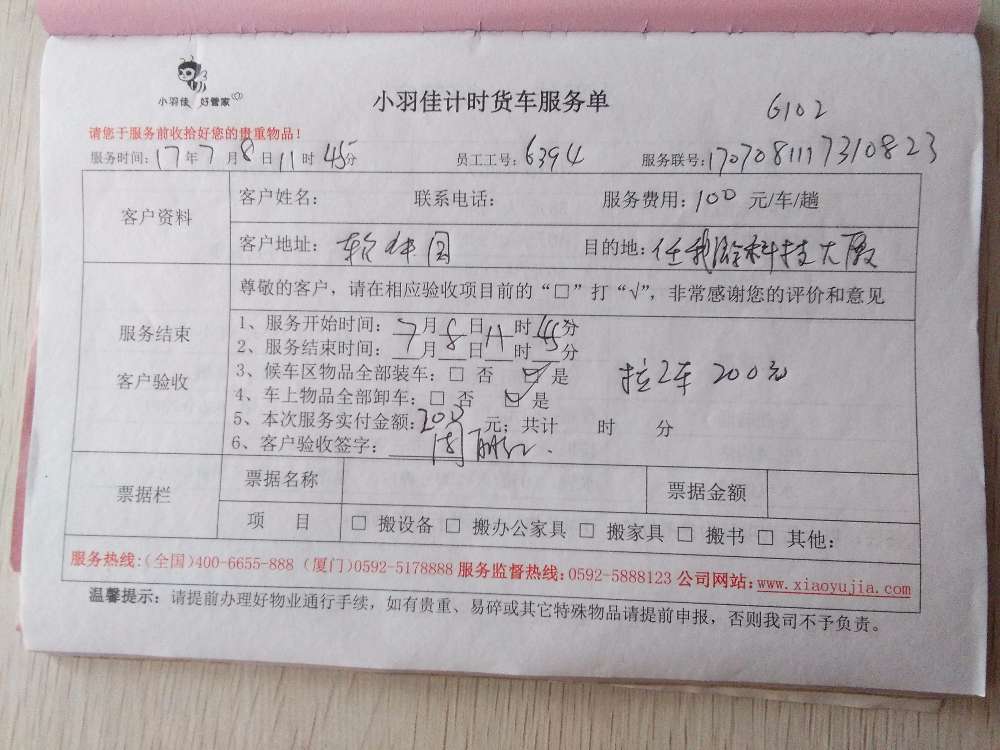 小羽佳 好管家
小羽佳计时货车服务单
G102
请您于服务前收拾好您的贵重物品!
服务时间: 17年7月8日11时45分 员工工号: 6394 服务联号: 1707081117310823
客户资料
客户姓名: 联系电话: 服务费用: 100 元/车/趟
客户地址: 软件园 目的地: 任我游科技大厦
服务结束
客户验收
尊敬的客户, 请在相应验收项目前的“□”打“√”, 非常感谢您的评价和意见
1、服务开始时间: 7月8日11时45分
2、服务结束时间: 月 日 时 分
3、候车区物品全部装车: □ 否 ☑ 是
拉2车 200元
4、车上物品全部卸车: □ 否 ☑ 是
5、本次服务实付金额: 200 元; 共计 时 分
6、客户验收签字: 周
票据栏
票据名称 票据金额
项 目 □ 搬设备 □ 搬办公家具 □ 搬家具 □ 搬书 □ 其他:
服务热线:(全国)400-6655-888 (厦门)0592-5178888 服务监督热线:0592-5888123 公司网站:www.xiaoyujia.com
温馨提示: 请提前办理好物业通行手续, 如有贵重、易碎或其它特殊物品请提前申报, 否则我司不予负责。